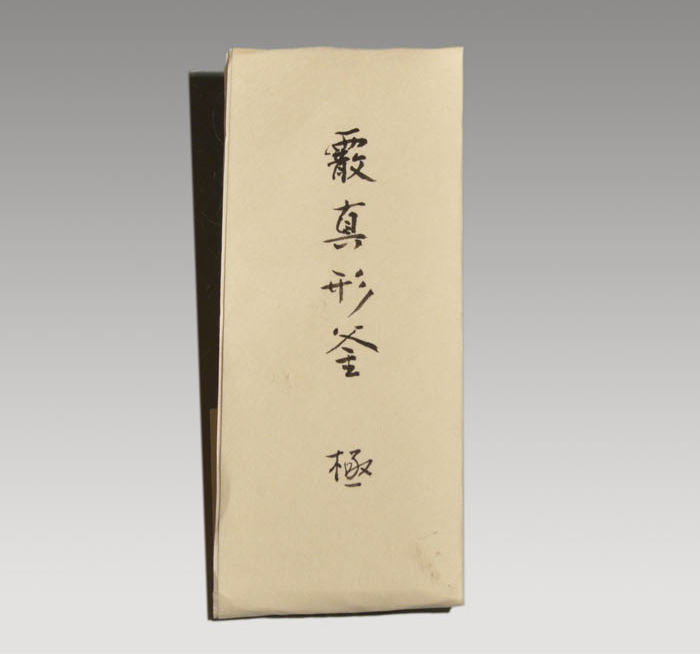 霰真形釜 極